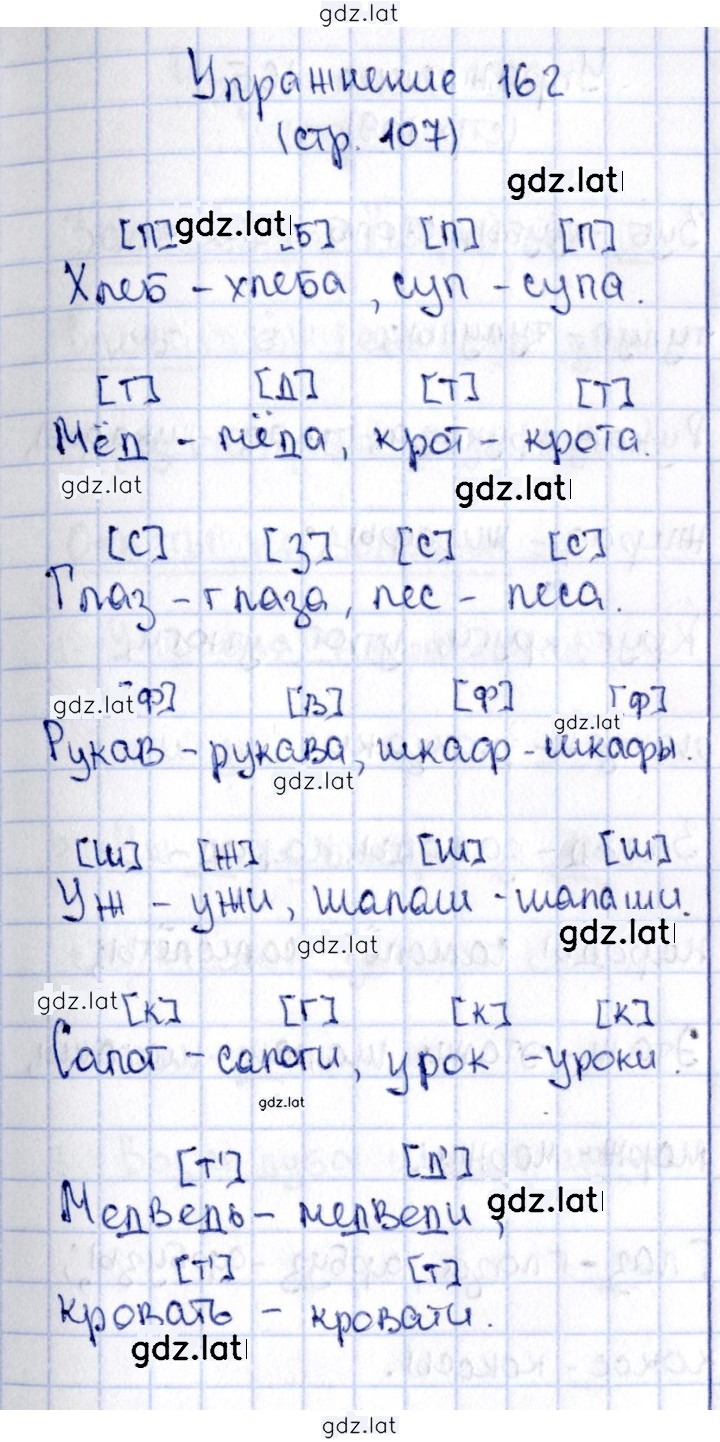 gdz.lat
Упражнение 162
(стр. 107)
gdz.lat
[п] gdz.lat [Б] [п] [п]
Хлеб – хлеба, суп – супа.
[т] [д] [т] [т]
Мёд – мёда, крот – крота.
gdz.lat gdz.lat
[с] [з] [с] [с]
Глаз – глаза, пес – песа.
gdz.lat [ф] [в] [ф] [ф]
gdz.lat
Рукав – рукава, шкаф – шкафы.
gdz.lat
[ш] [ж] [ш] [ш]
Уж – ужи, шалаш – шалаши.
gdz.lat gdz.lat
gdz.lat [к] [г] [к] [к]
Сапог – сапоги, урок – уроки.
gdz.lat
[т'] [д']
Медведь – медведи, gdz.lat
[т'] [т]
кровать – кровати.
gdz.lat
gdz.lat